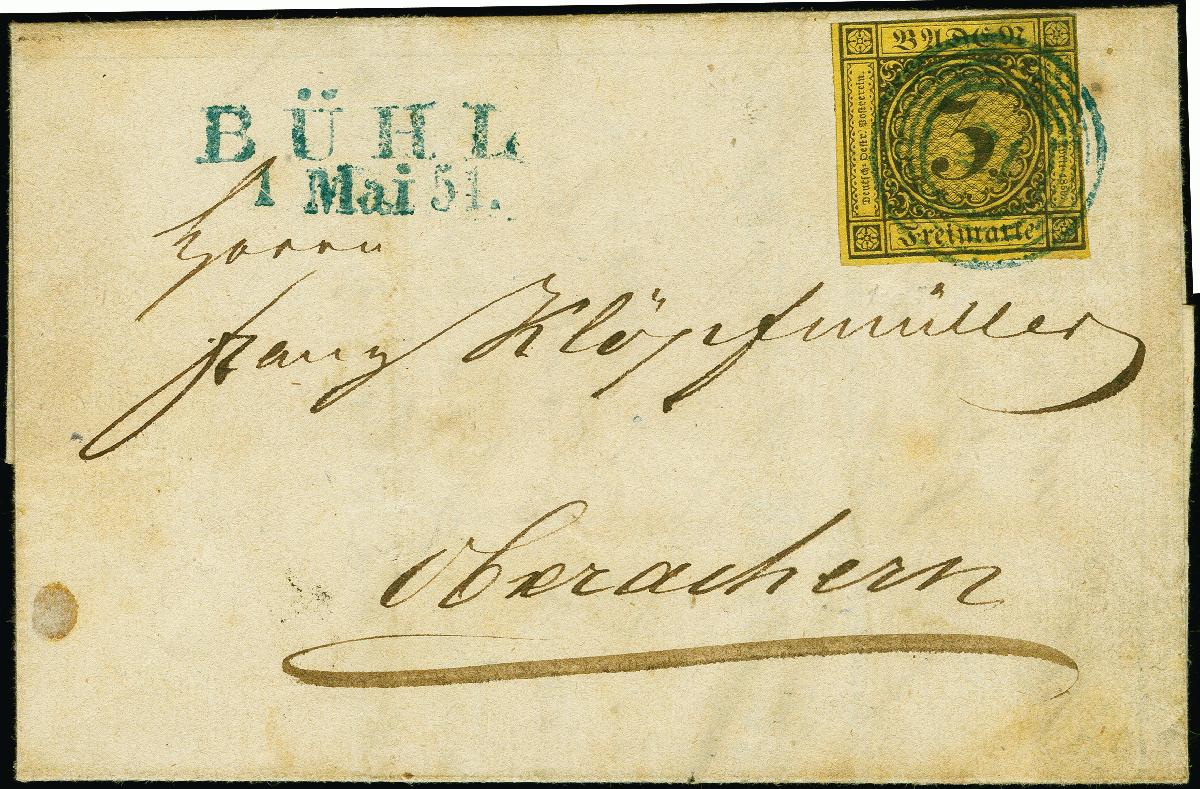 BÜHL
1 Mai 51.
Herrn
Franz Klöpfmüller
Oberachern
BADEN
Deutsch-Oestr. Postverein.
3.
Freimarke